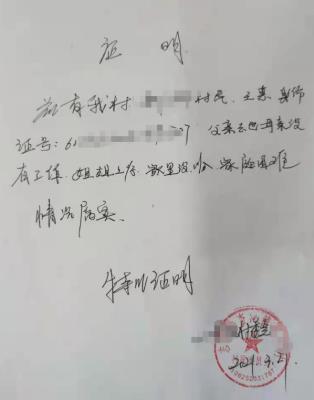 证 明
兹有我村 村民、王惠,身份
证号:6 27 父亲去世母亲没
有工作,姐姐上学,家里没 家庭困难
情况属实、
特此证明
2021.9.21